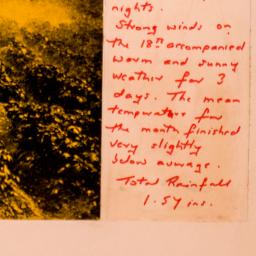 nights.
Strong winds on
the 18th accompanied
warm and sunny
weather for 3
days. The mean
temperature for
the month finished
very slightly
below average.
Total Rainfall
1.54 ins.